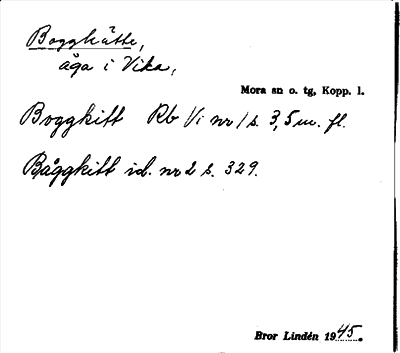 Boggkätte,
åga i Vika,
Mora sn o. tg, Kopp. l.
Boggkitt Rb Vi nr 1 s. 3, 5 m. fl.
Båggkitt id. nr 2 s. 329.
Bror Lindén 1945.